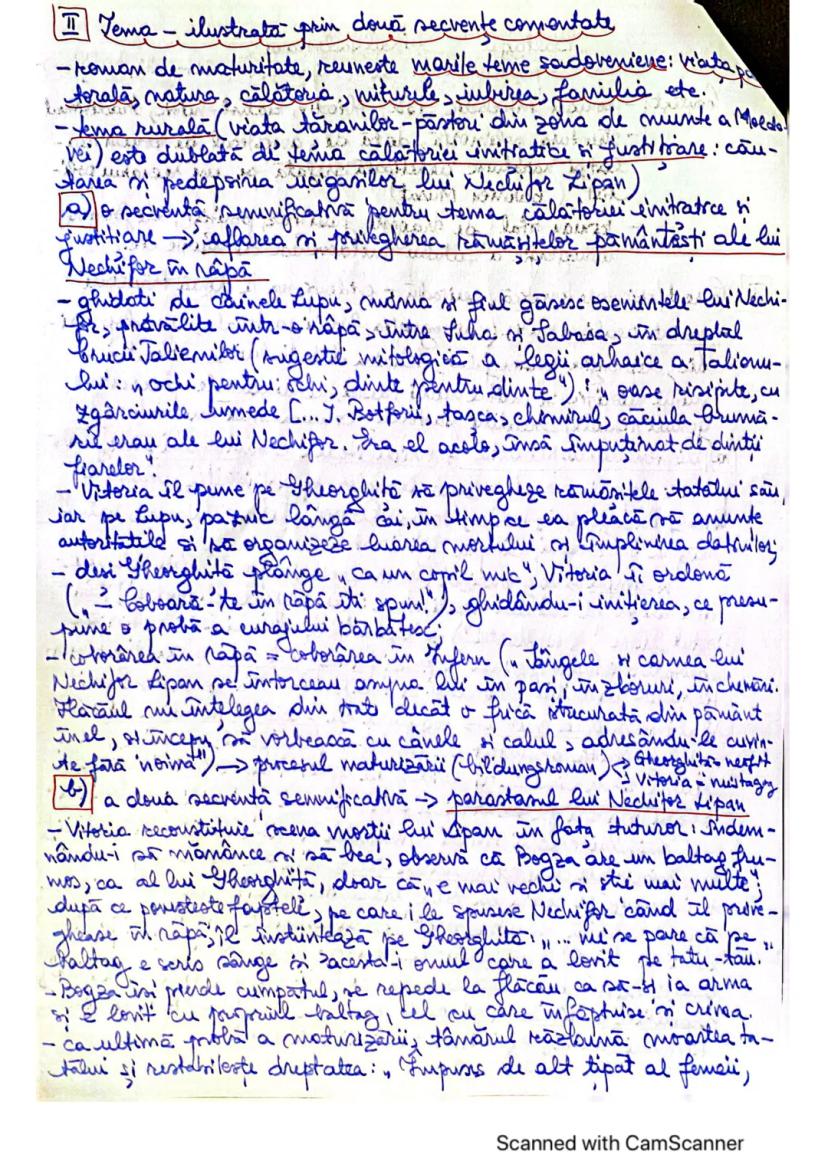 II Tema – ilustrată prin două secvențe comentate
– roman de maturitate, reunește marile teme sadoveniene: viața pas
torală, natura, călătoria, miturile, iubirea, familia etc.
– tema rurală (viața țăranilor-păstori din zona de munte a Moldo-
vei) este dublată de tema călătoriei inițiatice și justițiare: cău-
tarea și pedepsirea ucigașilor lui Nechifor Lipan)
a) o secvență semnificativă pentru tema călătoriei inițiatice și
justițiare → aflarea și privegherea rămășițelor pământești ale lui
Nechifor în râpă
– ghidați de câinele Lupu, mama și fiul găsesc osemintele lui Nechi-
for, prăvălite într-o râpă, între Suha și Sabasa, în dreptul
Crucii Talienilor (sugestie mitologică a legii arhaice a Talionu-
lui: „ochi pentru ochi, dinte pentru dinte"): „oase risipite, cu
zgârciurile umede [...]. Botforii, tașca, chimirul, căciula brumă-
rie erau ale lui Nechifor. Era el acolo, însă împuținat de dinții
fiarelor".
– Vitoria îl pune pe Gheorghiță să privegheze rămășițele tatălui său,
iar pe Lupu, paznic lângă cai, în timp ce ea pleacă să anunțe
autoritățile și să organizeze luarea mortului și împlinirea datinilor;
– deși Gheorghiță plânge „ca un copil mic", Vitoria îi ordonă
(„– Coboară-te în râpă îți spun!"), ghidându-i inițierea, ce presu-
pune o probă a curajului bărbătesc;
– coborârea în râpă = coborârea în Infern („Sângele și carnea lui
Nechifor Lipan se întorceau asupra lui în pași, în zboruri, în chemări.
Flăcăul nu înțelegea din toate decât o frică strecurată din pământ
în el, și începu să vorbească cu cânele și calul, adresându-le cuvin-
te fără noimă") → procesul maturizării (bildungsroman) → Gheorghiță = neofit
→ Vitoria = mistagog
b) a doua secvență semnificativă → parastasul lui Nechifor Lipan
– Vitoria reconstituie scena morții lui Lipan în fața tuturor: îndem-
nându-i să mănânce și să bea, observă că Bogza are un baltag fru-
mos, ca al lui Gheorghiță, doar că „e mai vechi și știe mai multe";
după ce povestește faptele, pe care i le spusese Nechifor când îl prive-
ghease în râpă, îl înștiințează pe Gheorghiță: „... mi se pare că pe
baltag e scris sânge și acesta-i omul care a lovit pe tatu-tău."
– Bogza își pierde cumpătul, se repede la flăcău ca să-și ia arma
și e lovit cu propriul baltag, cel cu care înfăptuise și crima.
– ca ultimă probă a maturizării, tânărul răzbună moartea ta-
tălui și restabilește dreptatea: „Împuns de alt țipăt al femeii,
Scanned with CamScanner